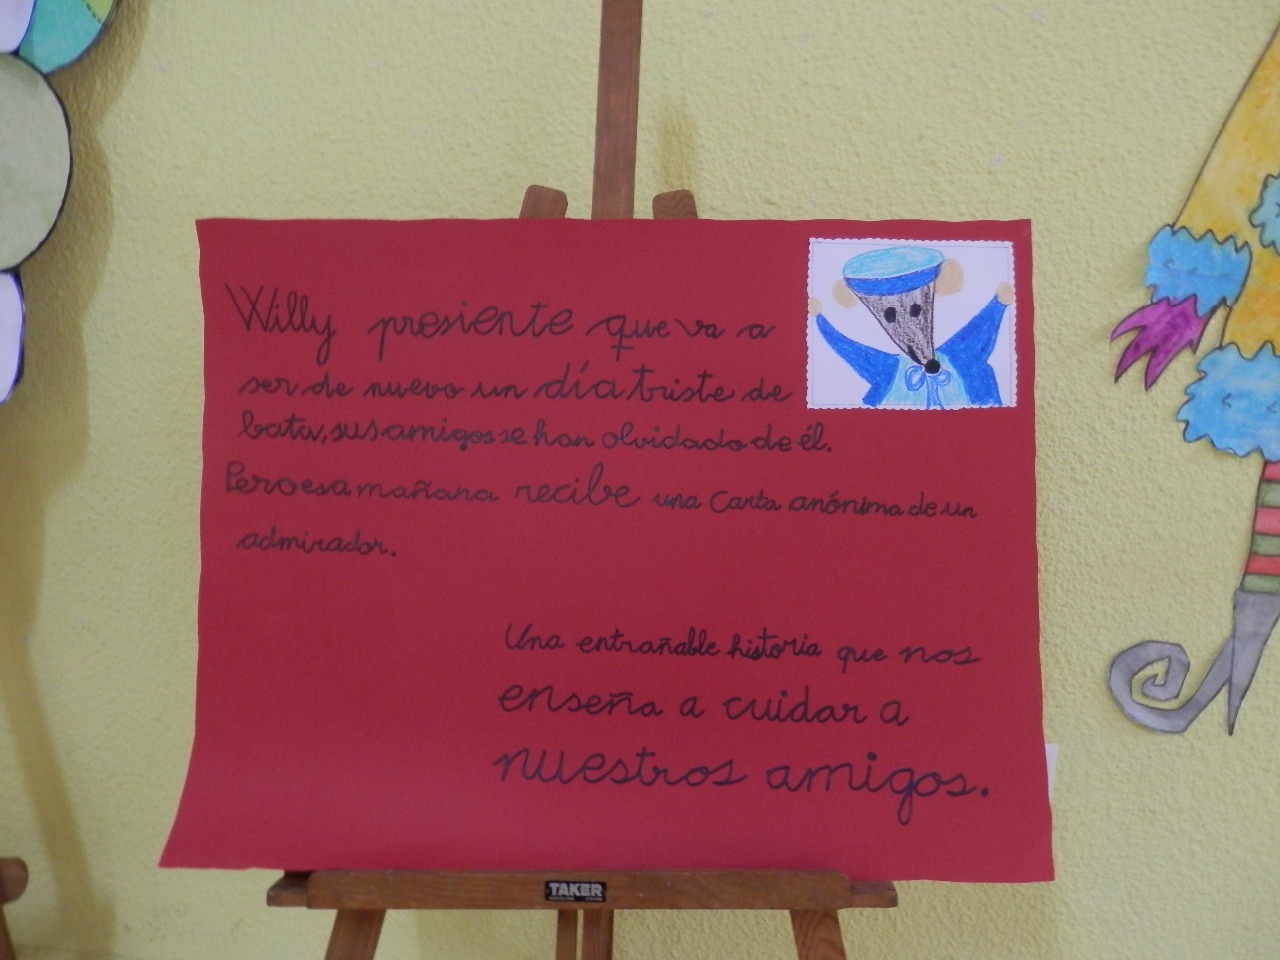 Willy presiente que va a
ser de nuevo un día triste de
bata, sus amigos se han olvidado de él.
Pero esa mañana recibe una carta anónima de un
admirador.
Una entrañable historia que nos
enseña a cuidar a
nuestros amigos.
TAKER